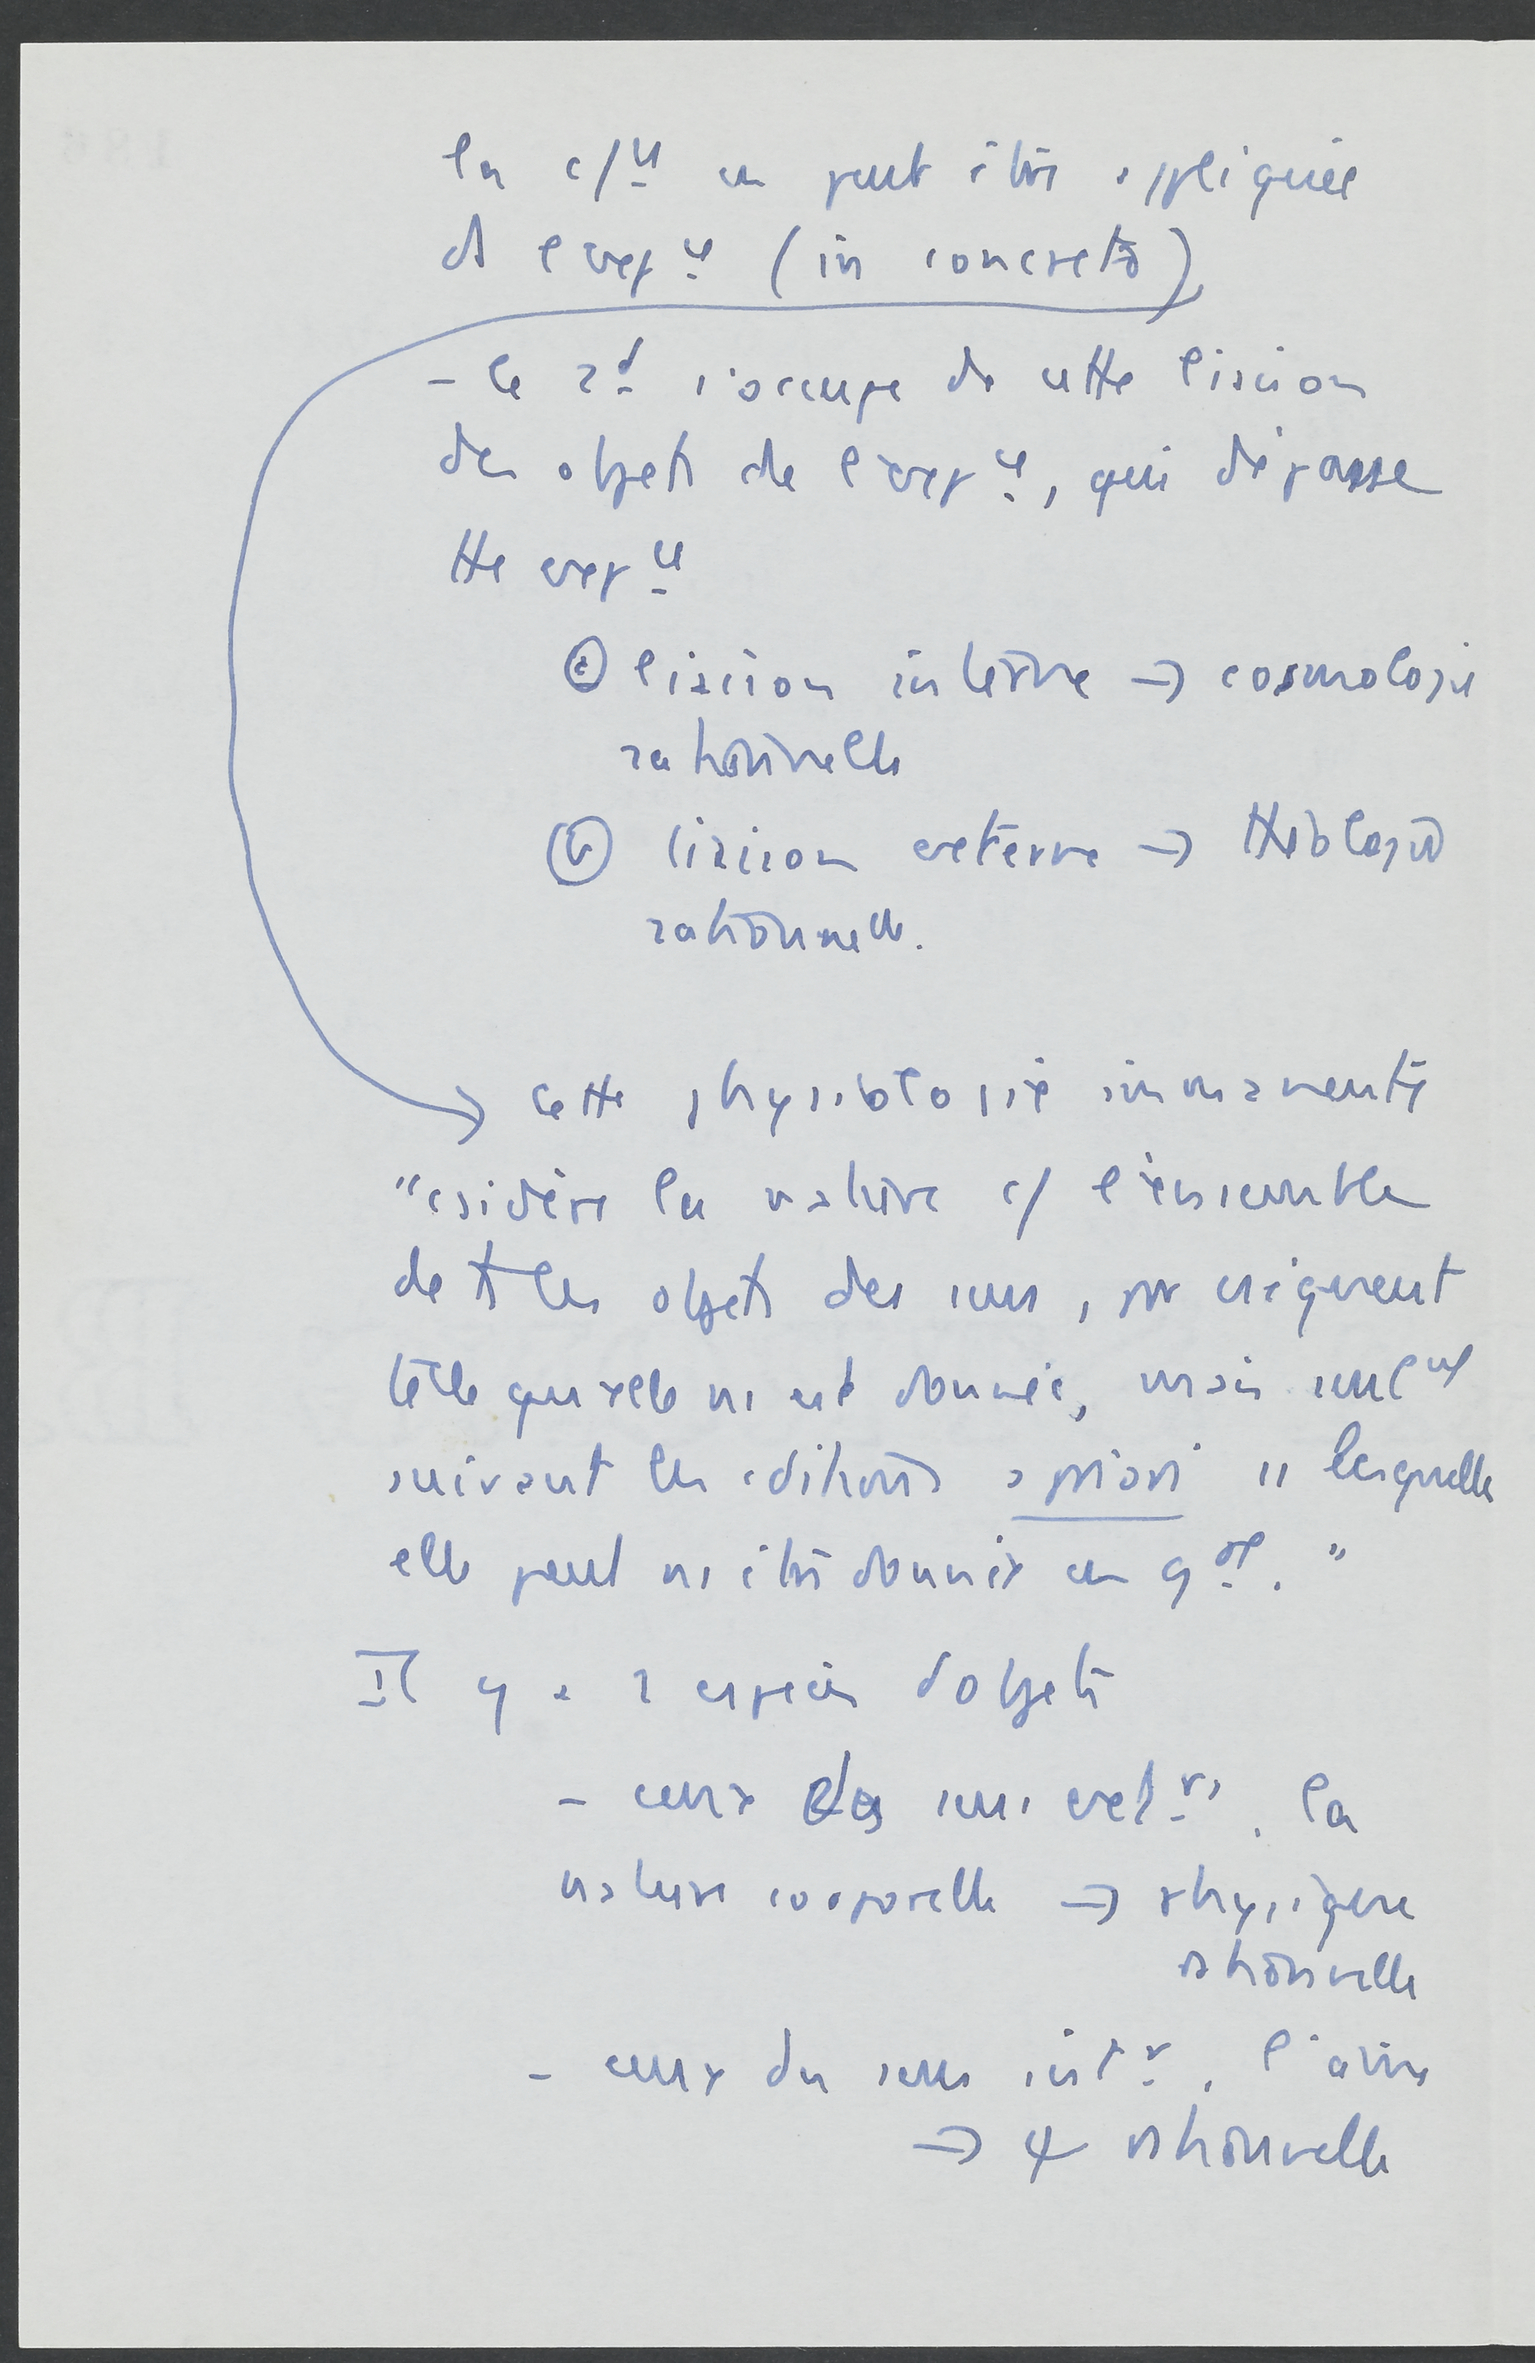 la c/ce en peut être appliquée
ds l'expce (in concreto)
- le 2d s'occupe de cette liaison
des objets de l'expce, qui dépasse
tte expce
ⓐ liaison interne → cosmologie
rationnelle
ⓑ liaison externe → théologie
rationnelle.
→ cette physiologie immanente
"csidère la nature c/ l'ensemble
de ts les objets des sens, par csiquent
telle qu'elle ns est donnée, mais seult
suivant les cditions a priori ss lesquelles
elle peut ns être donnée en gal."
Il y a 2 espèces d'objets
- ceux des sens extrs. la
nature corporelle → physique
rationnelle
- ceux du sens intr. l'âme
→ ψ rationnelle